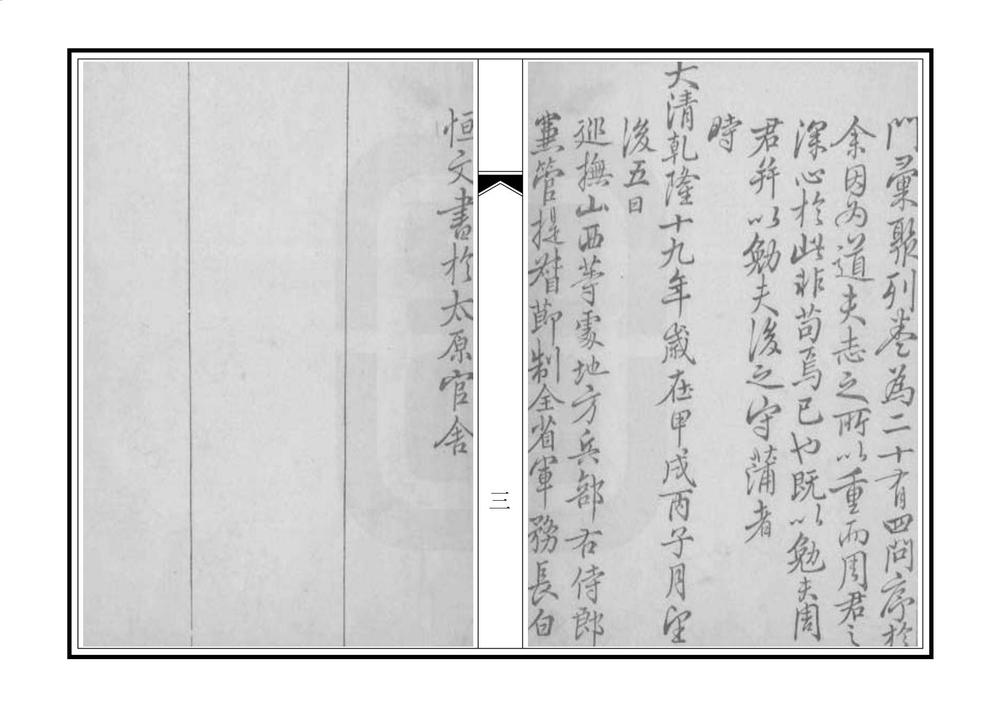 門彙聚列卷為二十有四問序於
余因为道夫志之所以重而周君之
深心於此非苟焉已也既以勉夫周
君并以勉夫後之守蒲者
時
大清乾隆十九年歲在甲戌丙子月望
後五日
巡撫山西等處地方兵部右侍郎
兼管提督節制全省軍務長白
三
恒文書於太原官舍